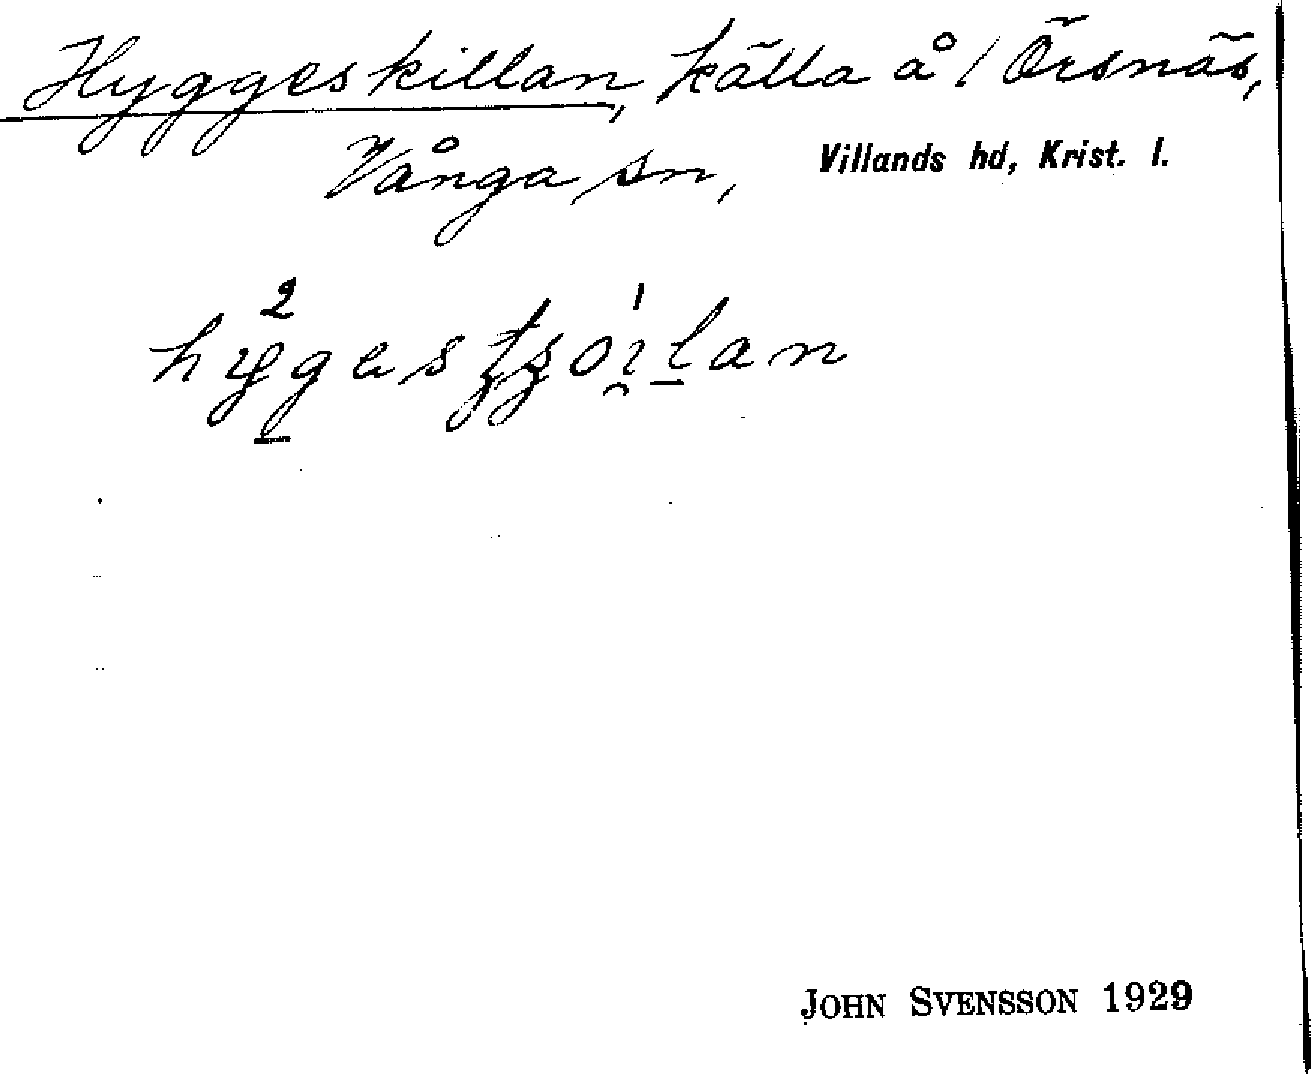 Hyggeskillan, källa å / Örsnäs,
Vånga sn, Villands hd, Krist. l.
JOHN SVENSSON 1929